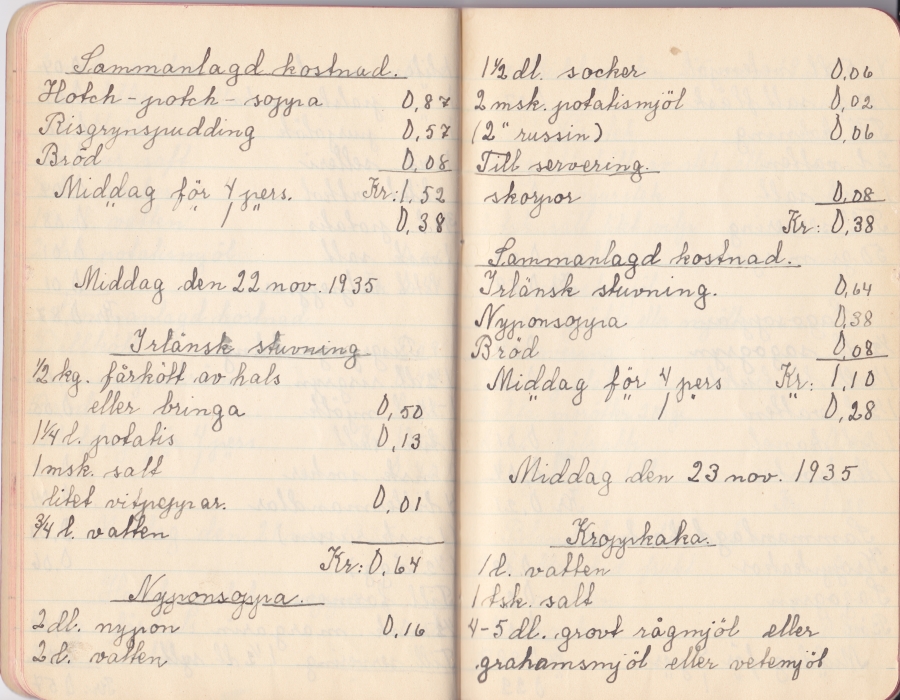 Sammanlagd kostnad.
Hotch-potch-soppa 0,87
Risgrynspudding 0,57
Bröd 0,08
Middag för 4 pers. Kr:1,52
" " 1 " 0,38
Middag den 22 nov. 1935
Irlänsk stuvning
1/2 kg. fårkött av hals
eller bringa 0,50
1 1/4 l. potatis 0,13
1 msk. salt
litet vitpeppar. 0,01
3/4 l. vatten
Kr:0,64
Nyponsoppa.
2 dl. nypon 0,16
2 l. vatten
1 1/2 dl. socker 0,06
2 msk. potatismjöl 0,02
(2 " russin) 0,06
Till servering.
skorpor 0,08
Kr: 0,38
Sammanlagd kostnad.
Irlänsk stuvning. 0,64
Nyponsoppa 0,38
Bröd 0,08
Middag för 4 pers Kr: 1,10
" " 1 " " 0,28
Middag den 23 nov. 1935
Kroppkaka.
1 l. vatten
1 tsk. salt
4-5 dl. grovt rågmjöl eller
grahamsmjöl eller vetemjöl